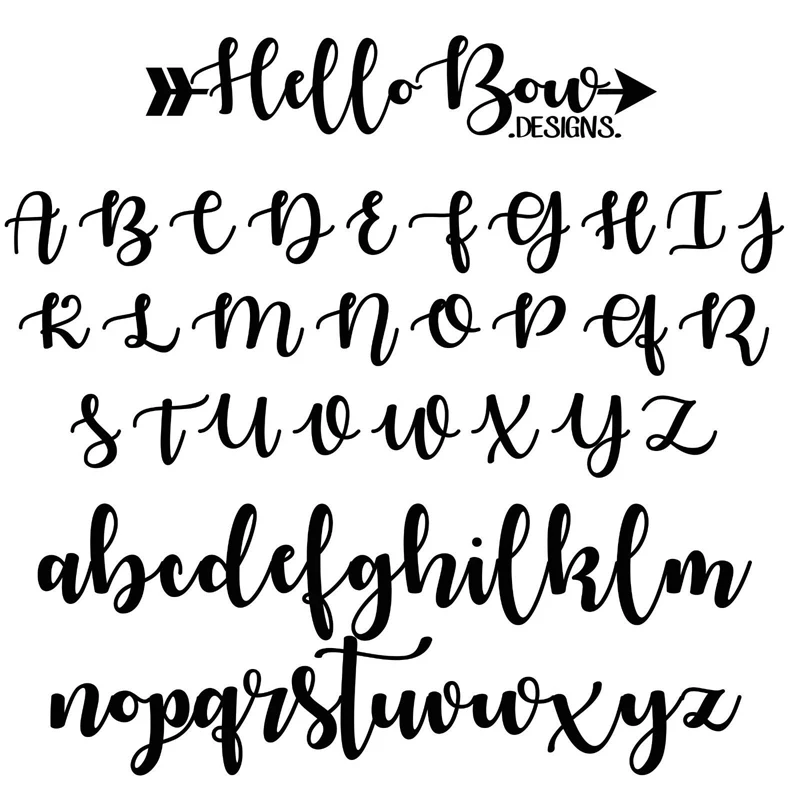 Hello Bow
.DESIGNS.
A B C D E F G H I J
K L M N O P Q R
S T U V W X Y Z
abcdefghijklm
nopqrstuvwxyz